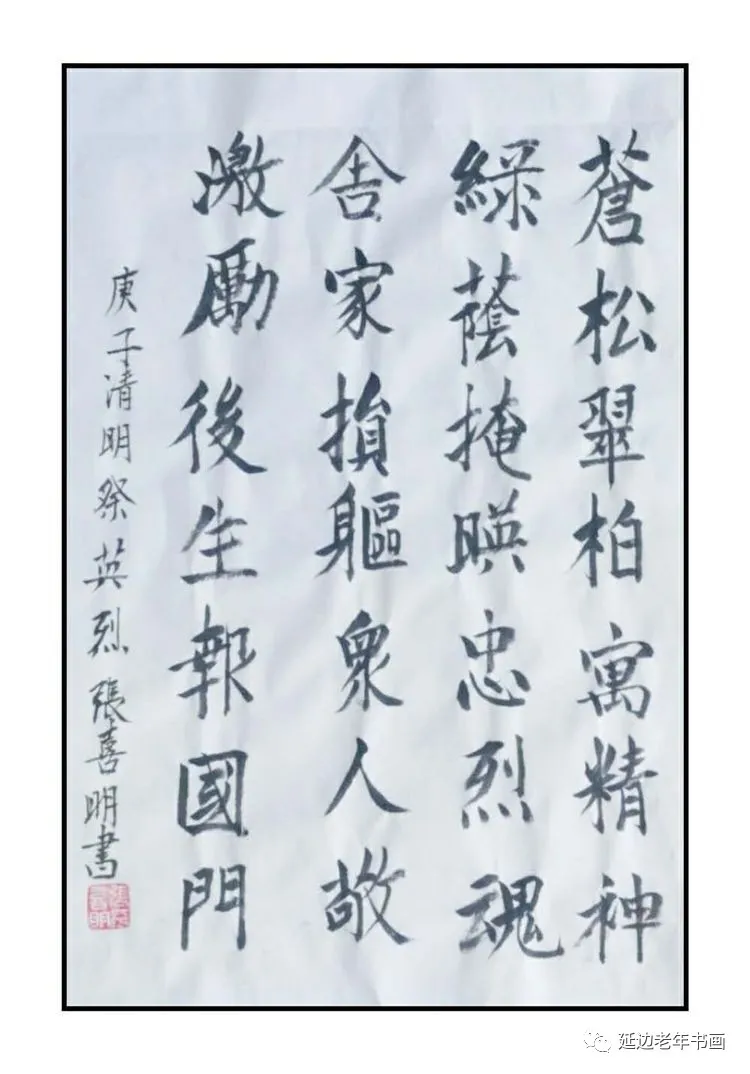 蒼松翠柏寓精神
綠蔭掩暎忠烈魂
舍家捐軀衆人敬
激勵後生報國門
庚子清明祭英烈 張喜明書
張喜明
延边老年书画